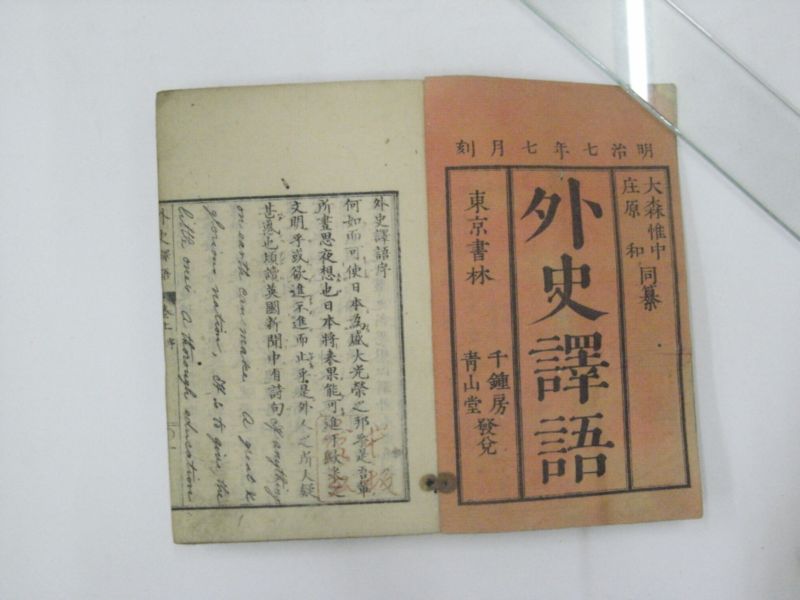 明治七年七月刻
大森惟中
庄原和 同纂
外史譯語
東京書林
千鍾房
青山堂 發兌
外史譯語序
何如而可使日本為盛大光榮之邦乎是吾輩
所晝思夜想也日本將来果能可進于歐米之
文明乎或欲進不進而止乎是外人之所人疑
甚惑也頃讀英國新聞中有詩句 If anything
on earth can make A great &
glorious nation, It is to give, the
little ones A thorough education
外史譯語